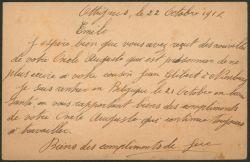 Ottignies, le 22 Octobre 1917
Emile
J'espère bien que vous avez reçut des nouvelles
de votre Oncle Auguste qui est prisonnier de ne
plus écrire à votre cousin Jean
Je suis rentrer en Belgique le 21 Octobre en bonne
santé en vous rapportant biens des compliments
de votre Oncle Auguste qui continue toujours
à travailler.
Biens des compliments de